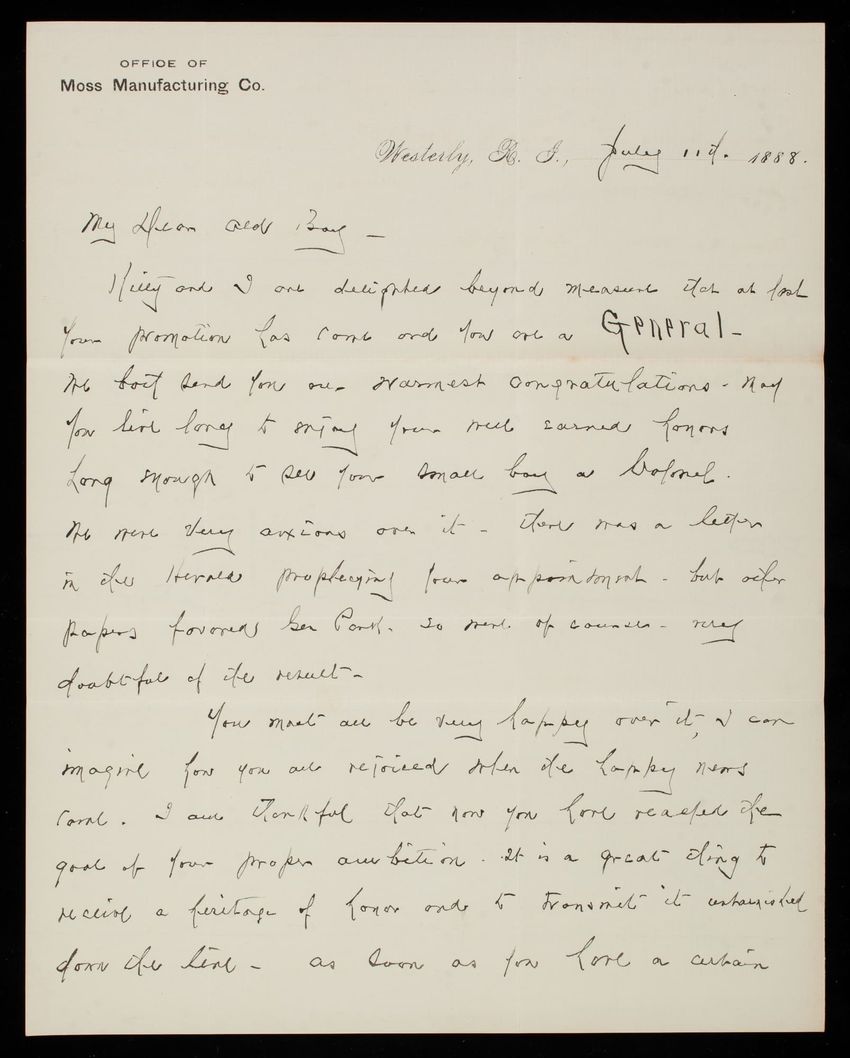 OFFICE OF
Moss Manufacturing Co.
Westerly, R. I., July 11th. 1888.
My Dear Old Boy —
Kitty and I are delighted beyond measure that at last
your promotion has come and you are a General —
We both send you our warmest congratulations - may
you live long to enjoy your well earned honors
Long enough to see your small boy a Colonel.
We were very anxious over it - there was a letter
in the Herald prophecying your appointment - but other
papers favored Gen Park. so were of course - very
doubtful of the result -
You must all be very happy over it, I can
imagine how you all rejoiced when the happy news
came. I am thankful that now you have reached the
goal of your proper ambition. It is a great thing to
receive a heritage of honor and to transmit it untarnished
down the line - as soon as you have a certain